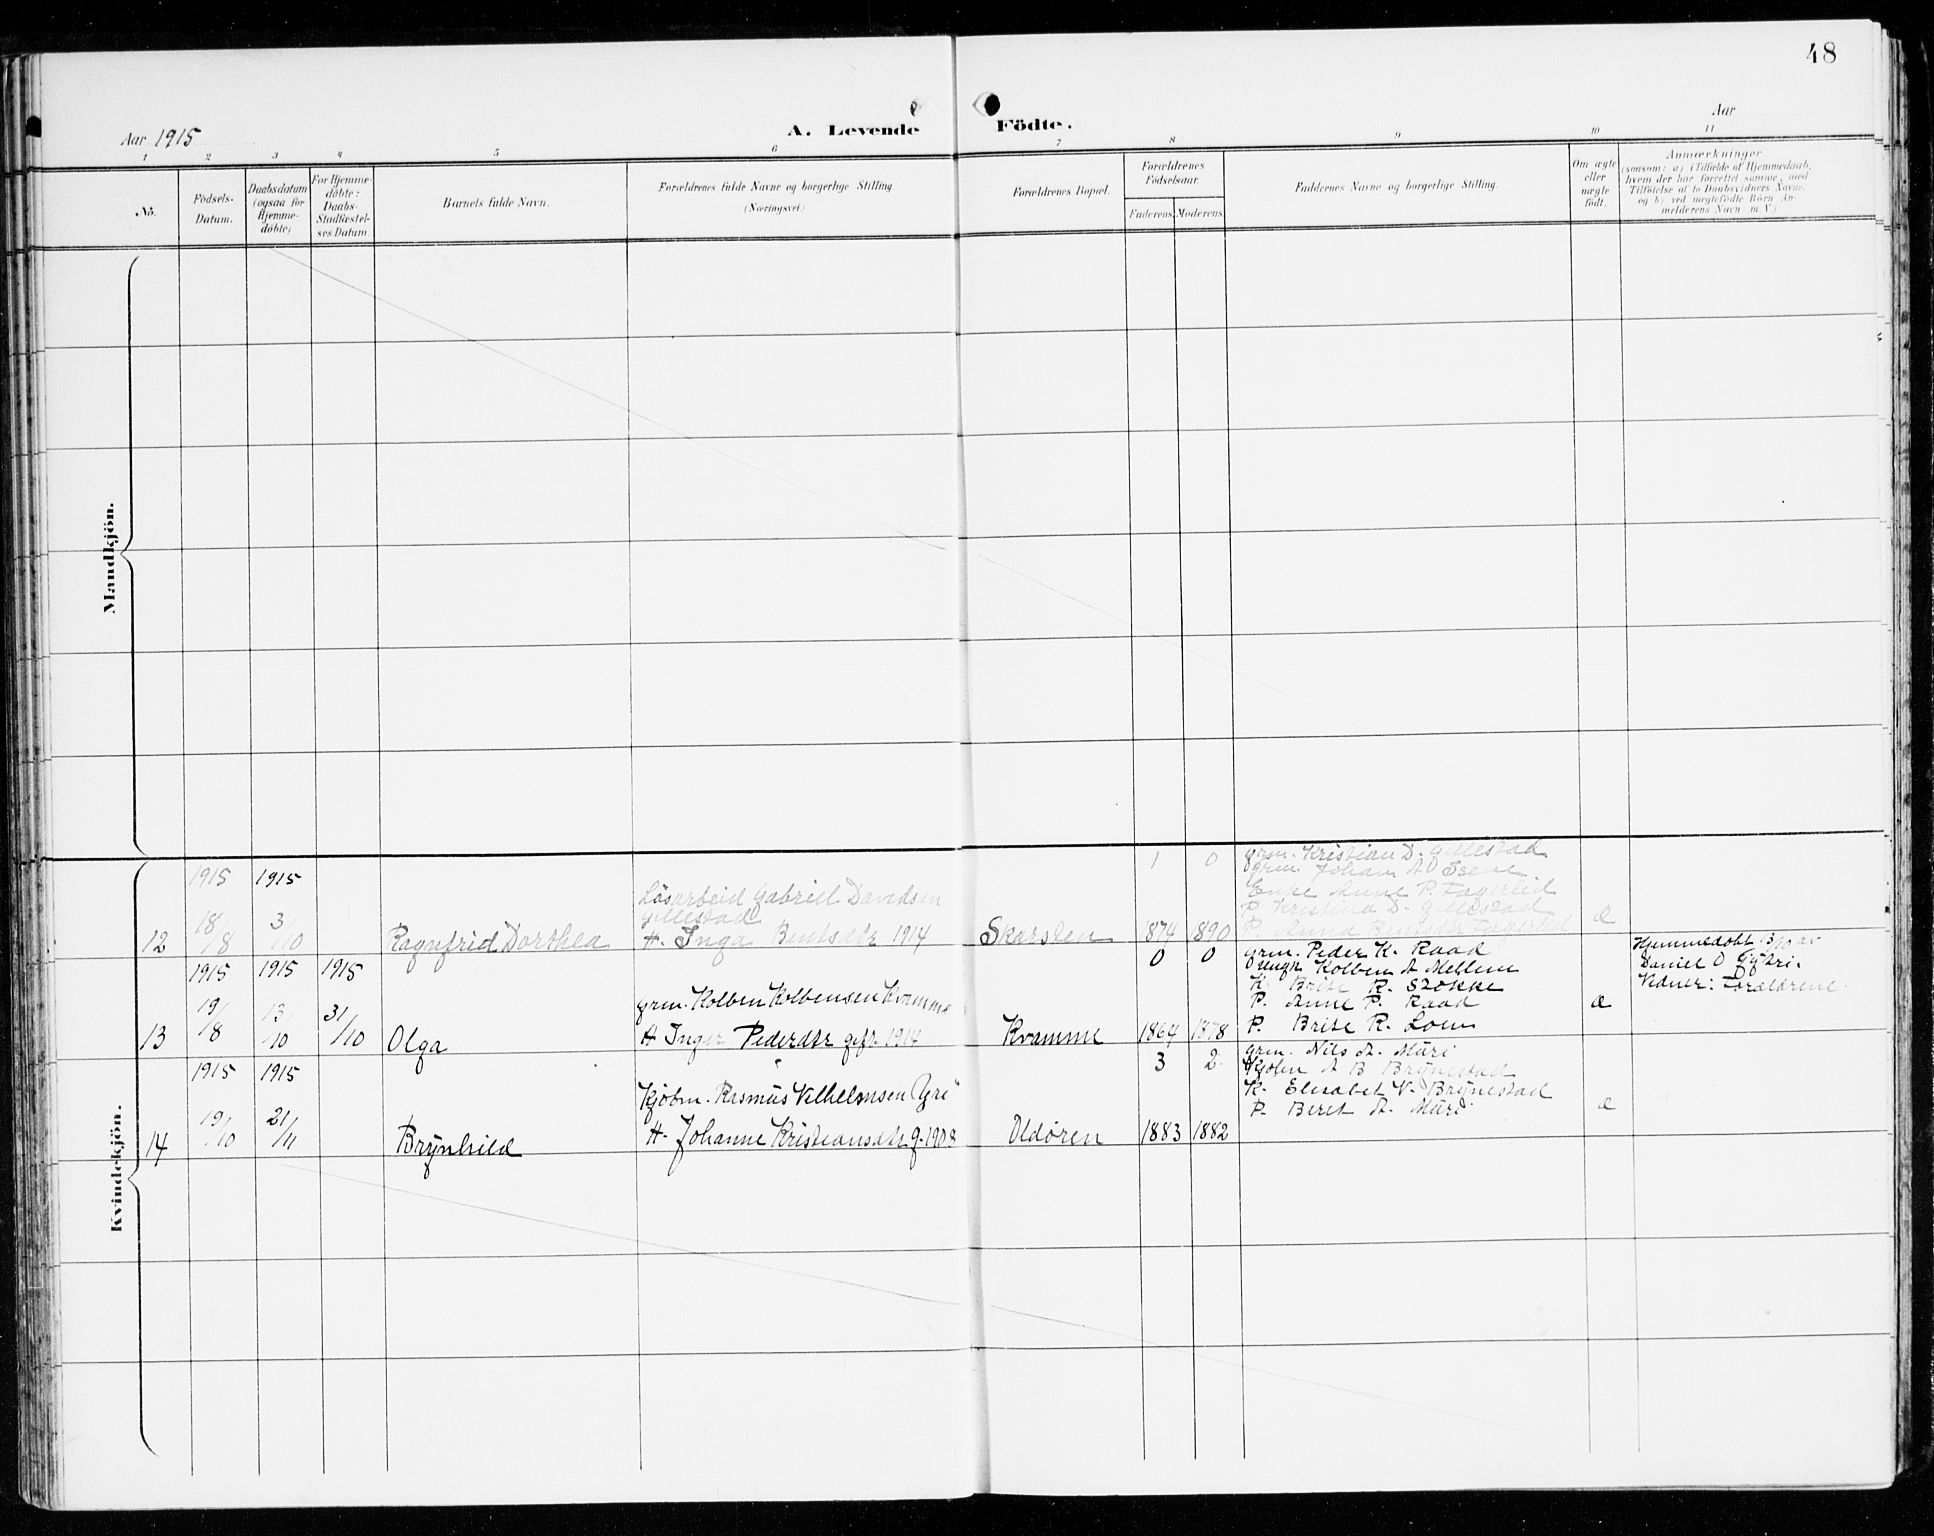 48
Aar 1915
A. Levende Födte.
Aar
1 2 3 4 5 6 7 8 9 10 11
No.
Födsels-
Datum.
Daabsdatum
(ogsaa for
Hjemme-
döbte)
For Hjemme-
döbte:
Daabs-
Stadfæstel-
ses Datum
Barnets fulde Navn.
Forældrenes fulde Navne og borgerlige Stilling.
(Næringsvei.)
Forældrenes Bopæl.
Forældrenes
Födselsaar.
Faderens. Moderens.
Faddernes Navne og borgerlige Stilling.
Om ægte
eller
uægte
födt.
Anmærkninger
(saasom: a) i Tilfælde af Hjemmedaab,
hvem der har forrettet samme, med
Tilföielse af to Daabsvidners Navne,
og b) ved uægtefödte Börn An-
melderens Navn m. V.)
Mandkjön.
Kvindekjön.
12
1915
18/8
1915
3/10
Ragnfrid Dorthea
Løsarbeid Gabriel Davidsen
Gillestad
H. Inga Bentsdtr 1914
Skarsten
1 0
1874 1890
grm. Kristian D. Gillestad
grm. Johan A Isene
Enke Anne P. Fagerlid
P. Kristina D. Gillestad
P. Anna Bentsdtr Fagerlid
Æ
13
1915
19/8
1915
13/10
1915
31/10
Olga
grm. Kolben Kolbensen Kvamme
H Inger Pedersdtr gift. 1914
Kvamme
0 0
1864 1878
grm. Peder K. Raad
Ungk Kolben A Mellem
K. Brite R. Stokke
P. Anne P. Raad
P. Brite R. Loen
Æ
Hjemmedøbt 13/10 av
Daniel O
Vidner: Forældrene
14
1915
19/10
1915
21/11
Brynhild
Kjøbm. Rasmus Vilhelmsen Yri
H. Johanne Kristiansdtr g. 1908
Oldøren
3 2
1883 1882
grm. Nils A. Muri
Kjøbm A B Brynestad
K. Elisabet V. Brynestad
P. Beret A. Muri
Æ